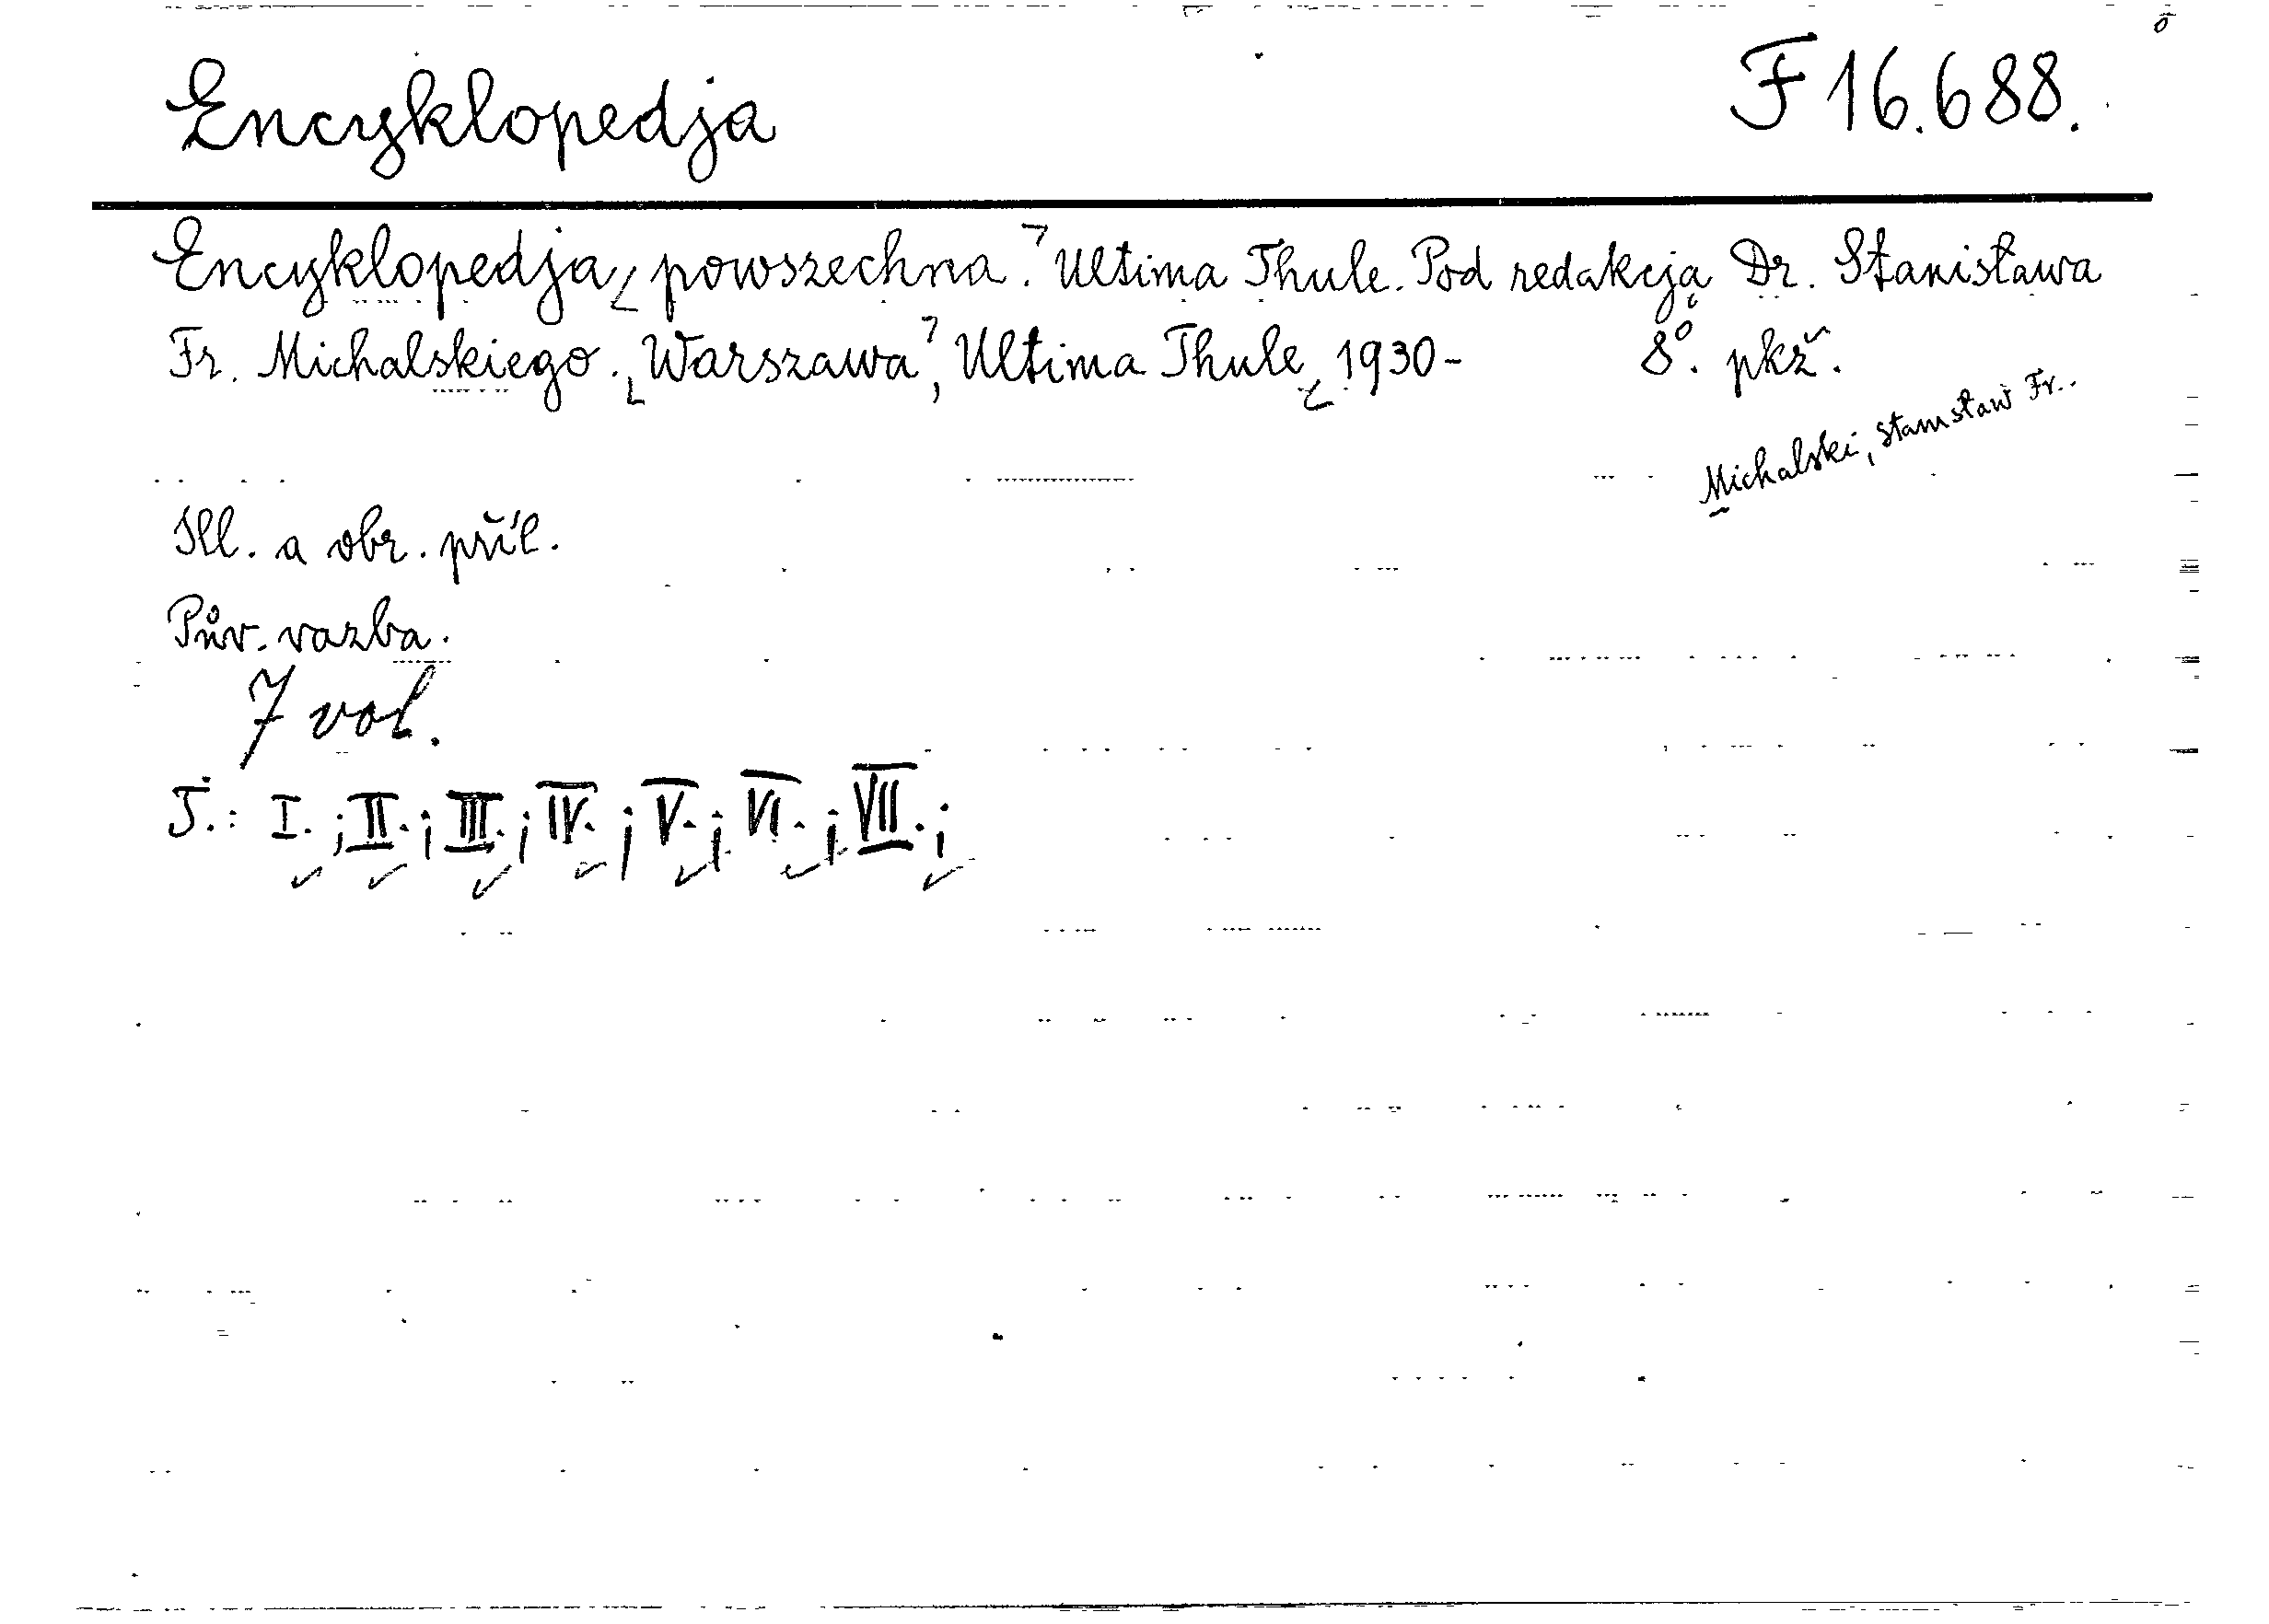 Encyklopedja F 16.688.
Encyklopedja powszechna. Ultima Thule. Pod redakcją Dr. Stanisława
Fr. Michalskiego. Warszawa, Ultima Thule 1930- 8º. pkž.
Michalski, Stanisław Fr..
Ill. a obr. příl.
Pův. vazba.
7 vol.
T.: I. ; II. ; III. ; IV. ; V. ; VI. ; VII. ;